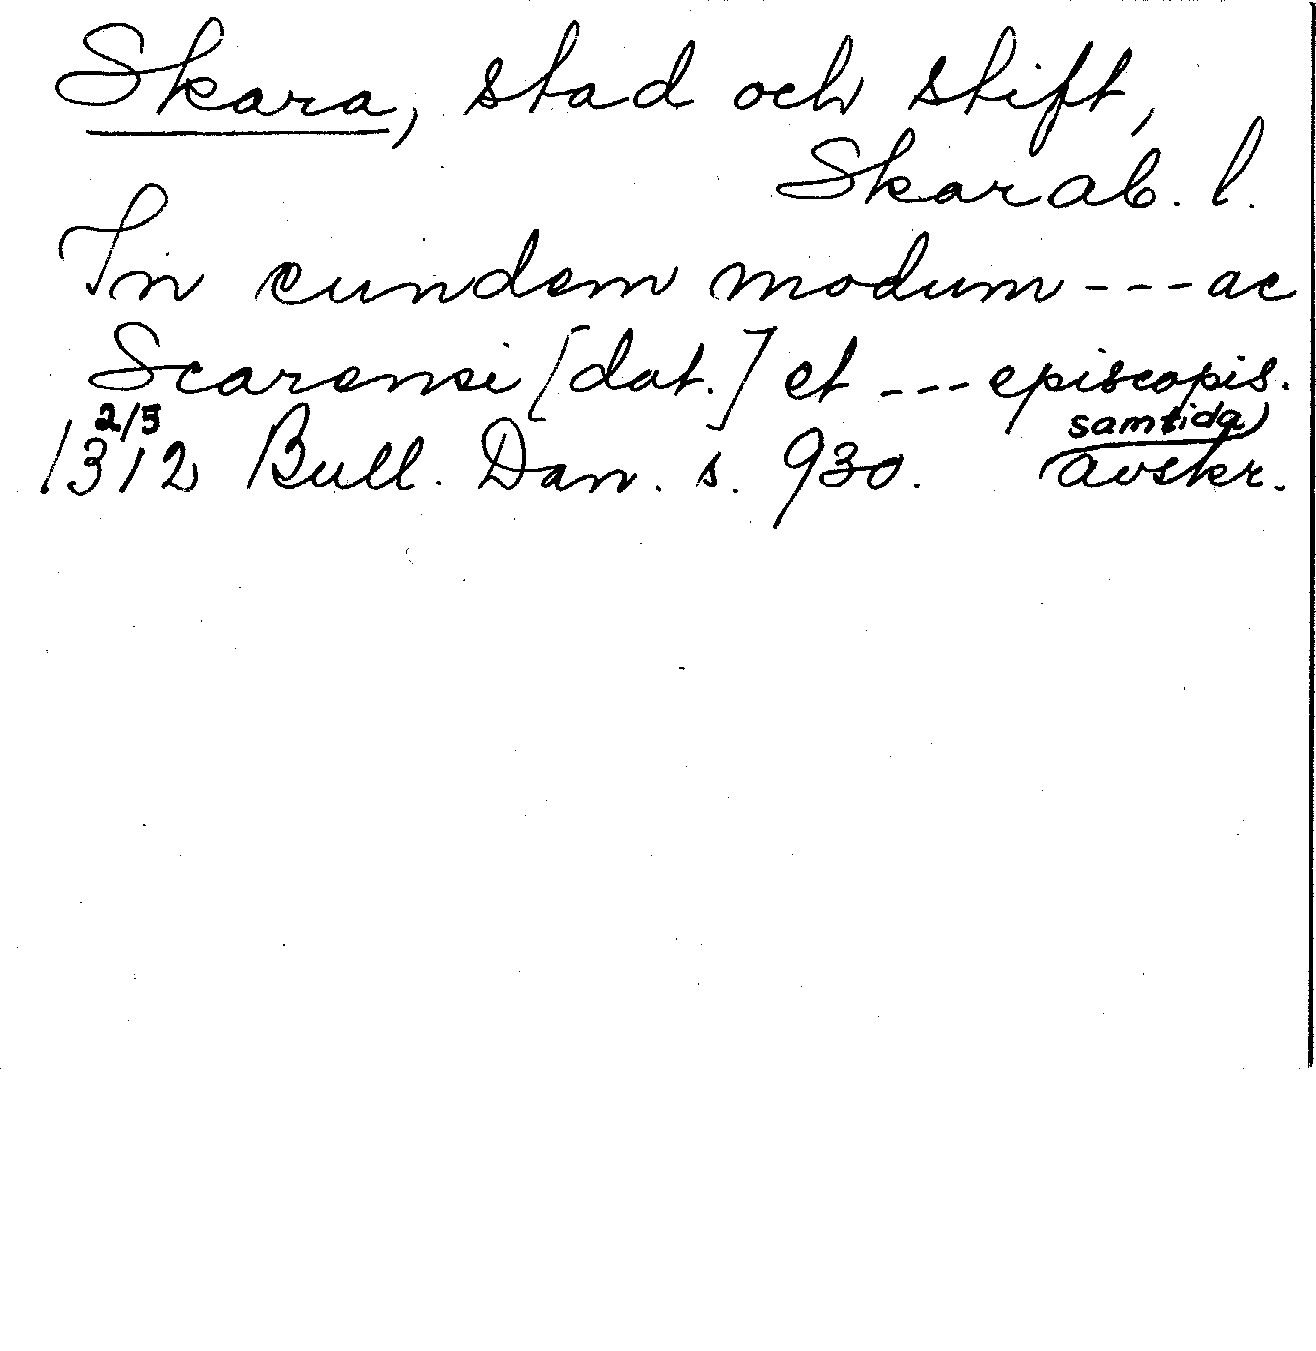 Skara, stad och stift,
Skarab. l.
In eundem modum --- ac
Scarensi [dat.] et --- episcopis.
2/5 samtida
1312 Bull. Dan. s. 930. avskr.